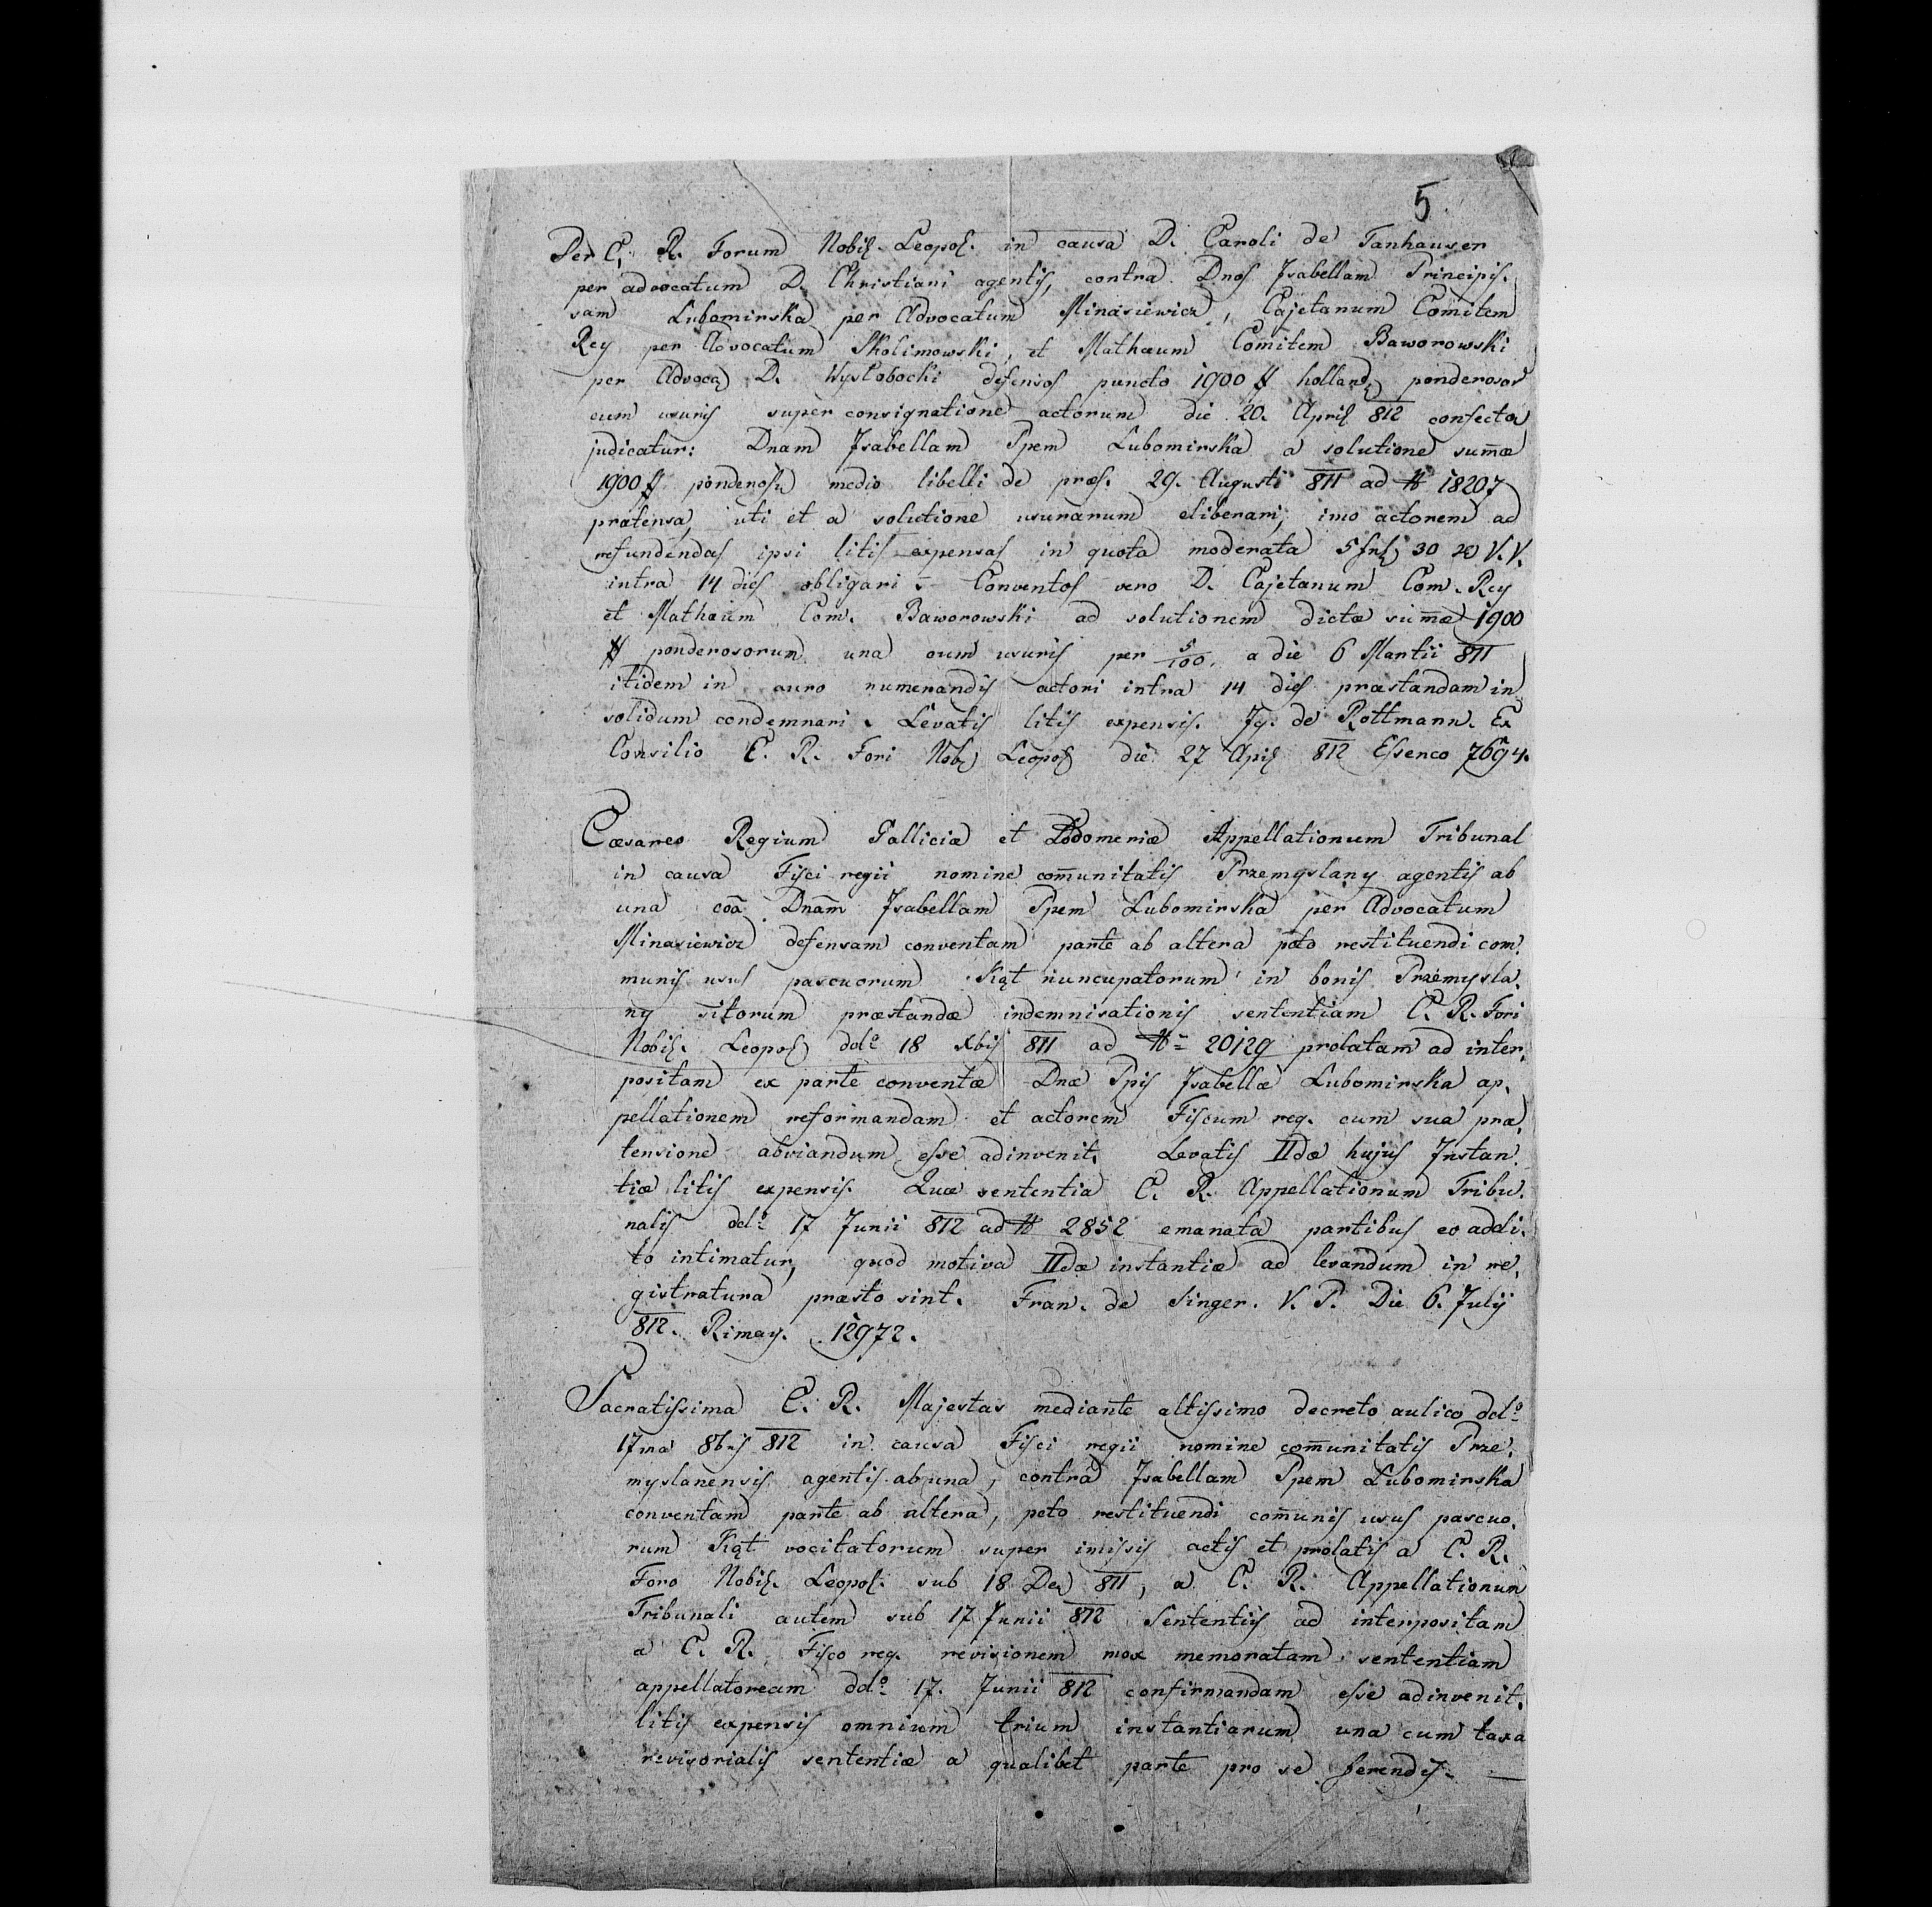 5
Per C. R. Forum Nobil. Leopol. in causa D. Caroli de Tanhauser
per advocatum D. Christiani agentis, contra Dnos Isabellam Principis-
sam Lubomirska per Advocatum Minasiewicz, Cajetanum Comitem
Rey per Advocatum Skolimowski, et Mathæum Comitem Baworowski
per Advoca D. Wysłobocki defensos puncto 1900 # holland ponderosor
cum usuris super consignatione actorum die 20. April 812 confecta
judicatur: Dnam Isabellam Ppem Lubomirska a solutione sum̄æ
1900 # ponderosu medio libelli de præs. 29. Augusti 811 ad № 18207
prætensa, uti et a solutione usurarum eliberari, imo actorem ad
refundendas ipsi litis expensas in quota moderata 5 fnl 30 xr V.V.
intra 14 dies obligari. Conventos vero D. Cajetanum Com. Rey
et Mathæum Com. Baworowski ad solutionem dictæ sum̄æ 1900
# ponderosorum una cum usuris per 5/100. a die 6 Martii 811
itidem in auro numerandis actori intra 14 dies præstandam in
solidum condemnari. Levatis litis expensis. Ig. de Rottmann. Ex
Consilio C. R. Fori Nob Leopol die 27 Apil 812 Essenco 7694.
Cæsareo Regium Galliciæ et Lodomeriæ Appellationum Tribunal
in causa Fisci regii nomine com̄unitatis Przemyslany agentis ab
una coā Dnām Isabellam Ppem Lubomirska per Advocatum
Minasiewicz defensam conventam parte ab altera pcto restituendi com-
munis usus pascuorum Kąt nuncupatorum in bonis Przemysla-
ny sitorum præstandæ indemnisationis sententiam C. R. Fori
Nobil. Leopol ddo 18 Xbis 811 ad № 20129 prolatam ad inter-
positam ex parte conventæ Dnæ Ppis Isabellæ Lubomirska ap-
pellationem reformandam et actorem Fiscum reg. cum sua præ-
tensione abviandum esse adinvenit. Levatis IIdæ hujus Instan-
tiæ litis expensis. Quæ sententia C. R. Appellationum Tribu-
nalis ddo 17 Junii 812 ad № 2852 emanata partibus eo addi-
to intimatur, quod motiva IIdæ instantiæ ad levandum in re-
gistratura præsto sint. Fran. de Singer. V. P. Die 6. Julij
812. Rimay. 12972.
Sacratissima C. R. Majestas mediante altissimo decreto aulico ddo
17ma 8bris 812 in causa Fisci regii nomine com̄unitatis Prze-
myslanensis agentis ab una, contra Isabellam Ppem Lubomirska
conventam parte ab altera, pcto restituendi com̄unis usus pascuo-
rum Kąt vocitatorum super imissis actis et prolatis a C. R.
Foro Nobil. Leopol. sub 18 Dec 811, a C. R. Appellationum
Tribunali autem sub 17 Junii 812 Sententiis ad interpositam
a C. R. Fisco reg. revisionem mox memoratam sententiam
appellatoream ddo 17. Junii 812 confirmandam esse adinvenit.
litis expensis omnium trium instantiarum una cum taxa
revisorialis sententiæ a qualibet parte pro se ferendis.